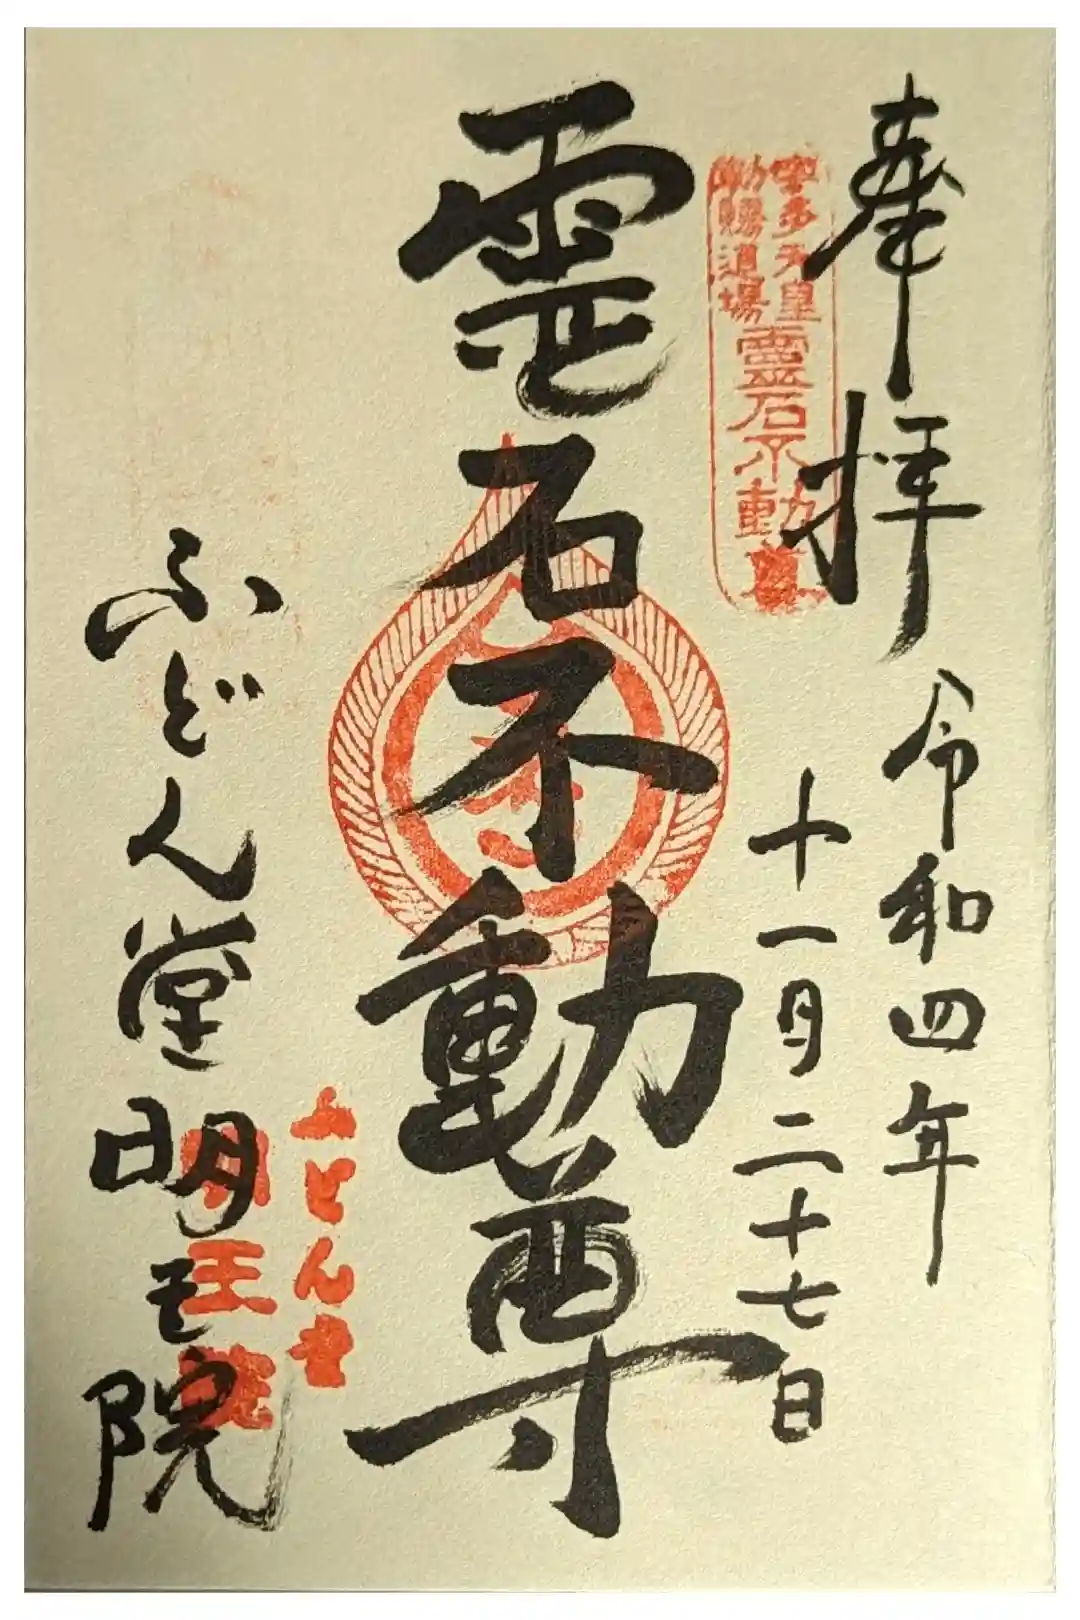 奉拝
令和四年
十一月二十七日
宇多天皇
勅賜道場
靈石不動尊
霊石不動尊
ふどん堂
明王院
ふどん堂明王院